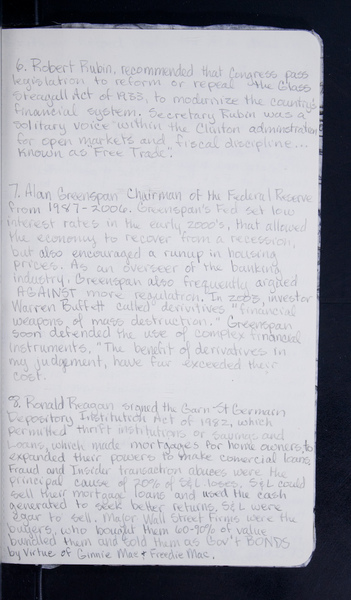 6. Robert Rubin, recommended that Congress pass
legislation to reform or repeal the Glass
Steagall Act of 1933, to modernize the country's
financial system. Secretary Rubin was a
solitary voice within the Clinton administration
for open markets and fiscal discipline...
known as "Free Trade."
7. Alan Greenspan Chairman of the Federal Reserve
from 1987-2006. Greenspan's Fed set low
interest rates in the early 2000's, that allowed
the economy to recover from a recession,
but also encouraged a runup in housing
prices. As an overseer of the banking
industry, Greenspan also frequently argued
AGAINST more regulation. In 2003, investor
Warren Buffett called derivitives "financial
weapons of mass destruction." Greenspan
soon defended the use of complex financial
instruments, "The benefit of derivatives in
my judgement, have far exceeded their
cost.
8. Ronald Reagan signed the Garn-St Germain
Depository Institution Act of 1982, which
permitted thrift institutions or savings and
Loans, which made mortgages for home owners, to
expanded their powers to make comercial loans.
Fraud and Insider transaction abuses were the
principal cause of 20% of S&L loses. S&L could
sell their mortgage loans and used the cash
generated to seek better returns, S&L were
eager to sell. Major Wall Street Firms were the
buyers, who bought them 60-90% of value
bundled them and sold them as Gov't BONDS
by Virtue of Ginnie Mac & Freddie Mac.